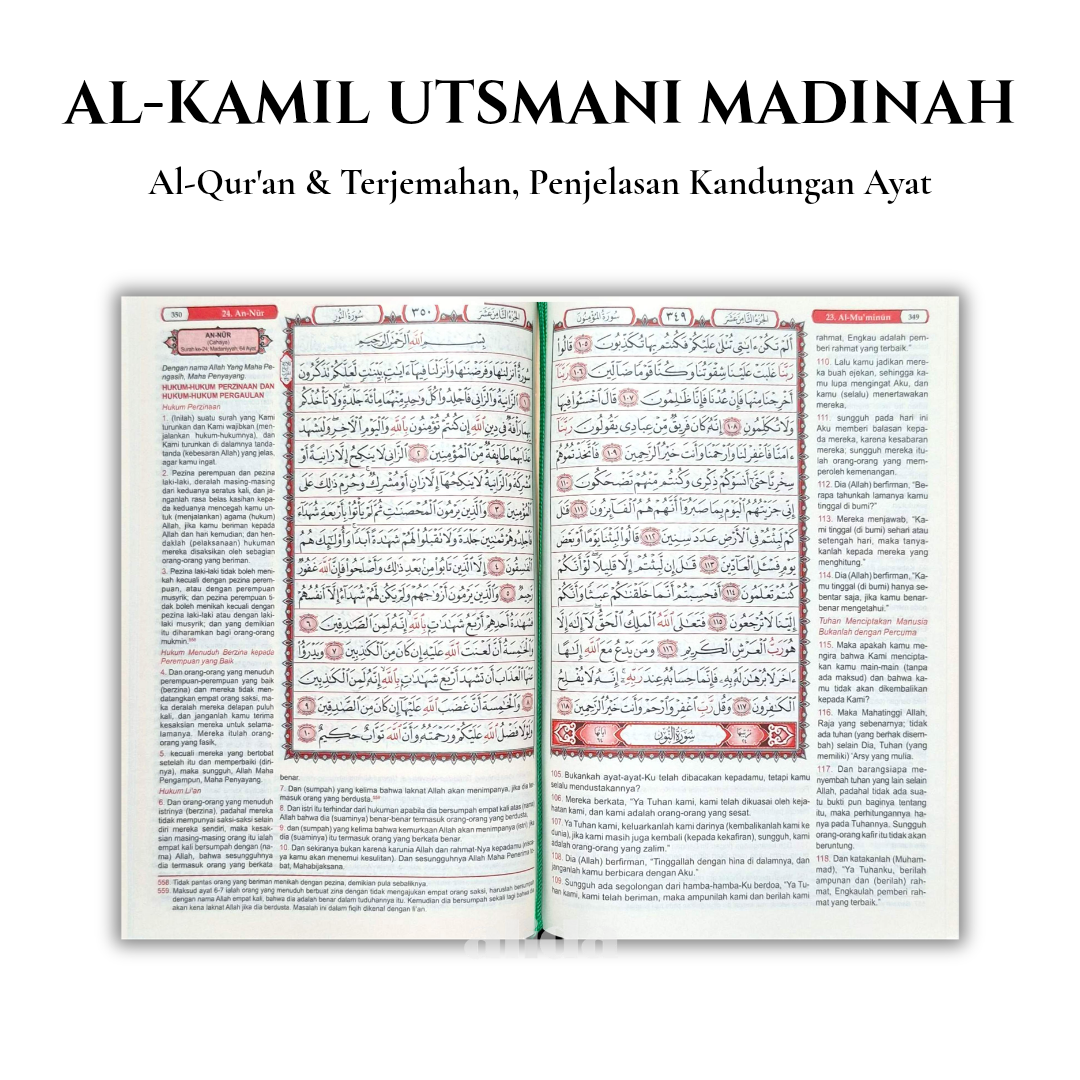 AL-KAMIL UTSMANI MADINAH
Al-Qur'an & Terjemahan, Penjelasan Kandungan Ayat
سُورَةُ المُؤْمِنُونَ
٣٤٩
الجُزْءُ الثَّامِنَ عَشَرَ
23. Al-Mu'minūn 349
أَلَمْ تَكُنْ ءَايَٰتِى تُتْلَىٰ عَلَيْكُمْ فَكُنتُم بِهَا تُكَذِّبُونَ ١٠٥ قَالُوا۟
رَبَّنَا غَلَبَتْ عَلَيْنَا شِقْوَتُنَا وَكُنَّا قَوْمًا ضَآلِّينَ ١٠٦ رَبَّنَآ
أَخْرِجْنَا مِنْهَا فَإِنْ عُدْنَا فَإِنَّا ظَٰلِمُونَ ١٠٧ قَالَ ٱخْسَـُٔوا۟ فِيهَا
وَلَا تُكَلِّمُونِ ١٠٨ إِنَّهُۥ كَانَ فَرِيقٌ مِّنْ عِبَادِى يَقُولُونَ رَبَّنَآ
ءَامَنَّا فَٱغْفِرْ لَنَا وَٱرْحَمْنَا وَأَنتَ خَيْرُ ٱلرَّٰحِمِينَ ١٠٩ فَٱتَّخَذْتُمُوهُمْ
سِخْرِيًّا حَتَّىٰٓ أَنسَوْكُمْ ذِكْرِى وَكُنتُم مِّنْهُمْ تَضْحَكُونَ ١١٠
إِنِّى جَزَيْتُهُمُ ٱلْيَوْمَ بِمَا صَبَرُوٓا۟ أَنَّهُمْ هُمُ ٱلْفَآئِزُونَ ١١١ قَٰلَ
كَمْ لَبِثْتُمْ فِى ٱلْأَرْضِ عَدَدَ سِنِينَ ١١٢ قَالُوا۟ لَبِثْنَا يَوْمًا أَوْ بَعْضَ
يَوْمٍ فَسْـَٔلِ ٱلْعَآدِّينَ ١١٣ قَٰلَ إِن لَّبِثْتُمْ إِلَّا قَلِيلًا لَّوْ أَنَّكُمْ
كُنتُمْ تَعْلَمُونَ ١١٤ أَفَحَسِبْتُمْ أَنَّمَا خَلَقْنَٰكُمْ عَبَثًا وَأَنَّكُمْ
إِلَيْنَا لَا تُرْجَعُونَ ١١٥ فَتَعَٰلَى ٱللَّهُ ٱلْمَلِكُ ٱلْحَقُّ لَآ إِلَٰهَ إِلَّا
هُوَ رَبُّ ٱلْعَرْشِ ٱلْكَرِيمِ ١١٦ وَمَن يَدْعُ مَعَ ٱللَّهِ إِلَٰهًا
ءَاخَرَ لَا بُرْهَٰنَ لَهُۥ بِهِۦ فَإِنَّمَا حِسَابُهُۥ عِندَ رَبِّهِۦٓ إِنَّهُۥ لَا يُفْلِحُ
ٱلْكَٰفِرُونَ ١١٧ وَقُل رَّبِّ ٱغْفِرْ وَٱرْحَمْ وَأَنتَ خَيْرُ ٱلرَّٰحِمِينَ ١١٨
سُورَةُ النُّورِ
105. Bukankah ayat-ayat-Ku telah dibacakan kepadamu, tetapi kamu
selalu mendustakannya?
106. Mereka berkata, "Ya Tuhan kami, kami telah dikuasai oleh keja-
hatan kami, dan kami adalah orang-orang yang sesat.
107. Ya Tuhan kami, keluarkanlah kami darinya (kembalikanlah kami ke
dunia), jika kami masih juga kembali (kepada kekafiran), sungguh, kami
adalah orang-orang yang zalim."
108. Dia (Allah) berfirman, "Tinggallah dengan hina di dalamnya, dan
janganlah kamu berbicara dengan Aku."
109. Sungguh ada segolongan dari hamba-hamba-Ku berdoa, "Ya Tu-
han kami, kami telah beriman, maka ampunilah kami dan berilah kami
rahmat, Engkau adalah pem-
beri rahmat yang terbaik."
110. Lalu kamu jadikan mere-
ka buah ejekan, sehingga ka-
mu lupa mengingat Aku, dan
kamu (selalu) menertawakan
mereka,
111. sungguh pada hari ini
Aku memberi balasan kepa-
da mereka, karena kesabaran
mereka; sungguh mereka itu-
lah orang-orang yang mem-
peroleh kemenangan.
112. Dia (Allah) berfirman, "Be-
rapa tahunkah lamanya kamu
tinggal di bumi?"
113. Mereka menjawab, "Ka-
mi tinggal (di bumi) sehari atau
setengah hari, maka tanya-
kanlah kepada mereka yang
menghitung."
114. Dia (Allah) berfirman, "Ka-
mu tinggal (di bumi) hanya se-
bentar saja, jika kamu benar-
benar mengetahui."
Tuhan Menciptakan Manusia
Bukanlah dengan Percuma
115. Maka apakah kamu me-
ngira bahwa Kami mencipta-
kan kamu main-main (tanpa
ada maksud) dan bahwa ka-
mu tidak akan dikembalikan
kepada Kami?
116. Maka Mahatinggi Allah,
Raja yang sebenarnya; tidak
ada tuhan (yang berhak disem-
bah) selain Dia, Tuhan (yang
memiliki) 'Arsy yang mulia.
117. Dan barangsiapa me-
nyembah tuhan yang lain selain
Allah, padahal tidak ada sua-
tu bukti pun baginya tentang
itu, maka perhitungannya ha-
nya pada Tuhannya. Sungguh
orang-orang kafir itu tidak akan
beruntung.
118. Dan katakanlah (Muham-
mad), "Ya Tuhanku, berilah
ampunan dan (berilah) rah-
mat, Engkaulah pemberi rah-
mat yang terbaik."
350 24. An-Nūr
سُورَةُ النُّورِ
٣٥٠
الجُزْءُ الثَّامِنَ عَشَرَ
AN-NŪR
(Cahaya)
Surah ke-24, Madaniyyah, 64 Ayat
Dengan nama Allah Yang Maha Pe-
ngasih, Maha Penyayang.
HUKUM-HUKUM PERZINAAN DAN
HUKUM-HUKUM PERGAULAN
Hukum Perzinaan
1. (Inilah) suatu surah yang Kami
turunkan dan Kami wajibkan (men-
jalankan hukum-hukumnya), dan
Kami turunkan di dalamnya tanda-
tanda (kebesaran Allah) yang jelas,
agar kamu ingat.
2. Pezina perempuan dan pezina
laki-laki, deralah masing-masing
dari keduanya seratus kali, dan ja-
nganlah rasa belas kasihan kepa-
da keduanya mencegah kamu un-
tuk (menjalankan) agama (hukum)
Allah, jika kamu beriman kepada
Allah dan hari kemudian; dan hen-
daklah (pelaksanaan) hukuman
mereka disaksikan oleh sebagian
orang-orang yang beriman.
3. Pezina laki-laki tidak boleh meni-
kah kecuali dengan pezina perem-
puan, atau dengan perempuan
musyrik; dan pezina perempuan ti-
dak boleh menikah kecuali dengan
pezina laki-laki atau dengan laki-
laki musyrik; dan yang demikian
itu diharamkan bagi orang-orang
mukmin.⁵⁵⁸
Hukum Menuduh Berzina kepada
Perempuan yang Baik
4. Dan orang-orang yang menuduh
perempuan-perempuan yang baik
(berzina) dan mereka tidak men-
datangkan empat orang saksi, ma-
ka deralah mereka delapan puluh
kali, dan janganlah kamu terima
kesaksian mereka untuk selama-
lamanya. Mereka itulah orang-
orang yang fasik,
5. kecuali mereka yang bertobat
setelah itu dan memperbaiki (diri-
nya), maka sungguh, Allah Maha
Pengampun, Maha Penyayang.
Hukum Li'an
6. Dan orang-orang yang menuduh
istrinya (berzina), padahal mereka
tidak mempunyai saksi-saksi selain
diri mereka sendiri, maka kesak-
sian masing-masing orang itu ialah
empat kali bersumpah dengan (na-
ma) Allah, bahwa sesungguhnya
dia termasuk orang yang berkata
بِسْمِ ٱللَّهِ ٱلرَّحْمَٰنِ ٱلرَّحِيمِ
سُورَةٌ أَنزَلْنَٰهَا وَفَرَضْنَٰهَا وَأَنزَلْنَا فِيهَآ ءَايَٰتٍۭ بَيِّنَٰتٍ لَّعَلَّكُمْ تَذَكَّرُونَ
١ ٱلزَّانِيَةُ وَٱلزَّانِى فَٱجْلِدُوا۟ كُلَّ وَٰحِدٍ مِّنْهُمَا مِا۟ئَةَ جَلْدَةٍ وَلَا تَأْخُذْكُم
بِهِمَا رَأْفَةٌ فِى دِينِ ٱللَّهِ إِن كُنتُمْ تُؤْمِنُونَ بِٱللَّهِ وَٱلْيَوْمِ ٱلْءَاخِرِ وَلْيَشْهَدْ
عَذَابَهُمَا طَآئِفَةٌ مِّنَ ٱلْمُؤْمِنِينَ ٢ ٱلزَّانِى لَا يَنكِحُ إِلَّا زَانِيَةً أَوْ
مُشْرِكَةً وَٱلزَّانِيَةُ لَا يَنكِحُهَآ إِلَّا زَانٍ أَوْ مُشْرِكٌ وَحُرِّمَ ذَٰلِكَ عَلَى
ٱلْمُؤْمِنِينَ ٣ وَٱلَّذِينَ يَرْمُونَ ٱلْمُحْصَنَٰتِ ثُمَّ لَمْ يَأْتُوا۟ بِأَرْبَعَةِ شُهَدَآءَ
فَٱجْلِدُوهُمْ ثَمَٰنِينَ جَلْدَةً وَلَا تَقْبَلُوا۟ لَهُمْ شَهَٰدَةً أَبَدًا وَأُو۟لَٰٓئِكَ هُمُ
ٱلْفَٰسِقُونَ ٤ إِلَّا ٱلَّذِينَ تَابُوا۟ مِنۢ بَعْدِ ذَٰلِكَ وَأَصْلَحُوا۟ فَإِنَّ ٱللَّهَ غَفُورٌ
رَّحِيمٌ ٥ وَٱلَّذِينَ يَرْمُونَ أَزْوَٰجَهُمْ وَلَمْ يَكُن لَّهُمْ شُهَدَآءُ إِلَّآ أَنفُسُهُمْ
فَشَهَٰدَةُ أَحَدِهِمْ أَرْبَعُ شَهَٰدَٰتٍۭ بِٱللَّهِ إِنَّهُۥ لَمِنَ ٱلصَّٰدِقِينَ ٦
وَٱلْخَٰمِسَةُ أَنَّ لَعْنَتَ ٱللَّهِ عَلَيْهِ إِن كَانَ مِنَ ٱلْكَٰذِبِينَ ٧ وَيَدْرَؤُا۟
عَنْهَا ٱلْعَذَابَ أَن تَشْهَدَ أَرْبَعَ شَهَٰدَٰتٍۭ بِٱللَّهِ إِنَّهُۥ لَمِنَ ٱلْكَٰذِبِينَ
٨ وَٱلْخَٰمِسَةَ أَنَّ غَضَبَ ٱللَّهِ عَلَيْهَآ إِن كَانَ مِنَ ٱلصَّٰدِقِينَ ٩
وَلَوْلَا فَضْلُ ٱللَّهِ عَلَيْكُمْ وَرَحْمَتُهُۥ وَأَنَّ ٱللَّهَ تَوَّابٌ حَكِيمٌ ١٠
benar.
7. Dan (sumpah) yang kelima bahwa laknat Allah akan menimpanya, jika dia ter-
masuk orang yang berdusta.⁵⁵⁹
8. Dan istri itu terhindar dari hukuman apabila dia bersumpah empat kali atas (nama)
Allah bahwa dia (suaminya) benar-benar termasuk orang yang berdusta,
9. dan (sumpah) yang kelima bahwa kemurkaan Allah akan menimpanya (istri), jika
dia (suaminya) itu termasuk orang yang berkata benar.
10. Dan sekiranya bukan karena karunia Allah dan rahmat-Nya kepadamu (nisca-
ya kamu akan menemui kesulitan). Dan sesungguhnya Allah Maha Penerima to-
bat, Mahabijaksana.
558. Tidak pantas orang yang beriman menikah dengan pezina, demikian pula sebaliknya.
559. Maksud ayat 6-7 ialah orang yang menuduh berbuat zina dengan tidak mengajukan empat orang saksi, haruslah bersumpah
dengan nama Allah empat kali, bahwa dia adalah benar dalam tuduhannya itu. Kemudian dia bersumpah sekali lagi bahwa dia
akan kena laknat Allah jika dia berdusta. Masalah ini dalam fiqih dikenal dengan li'an.